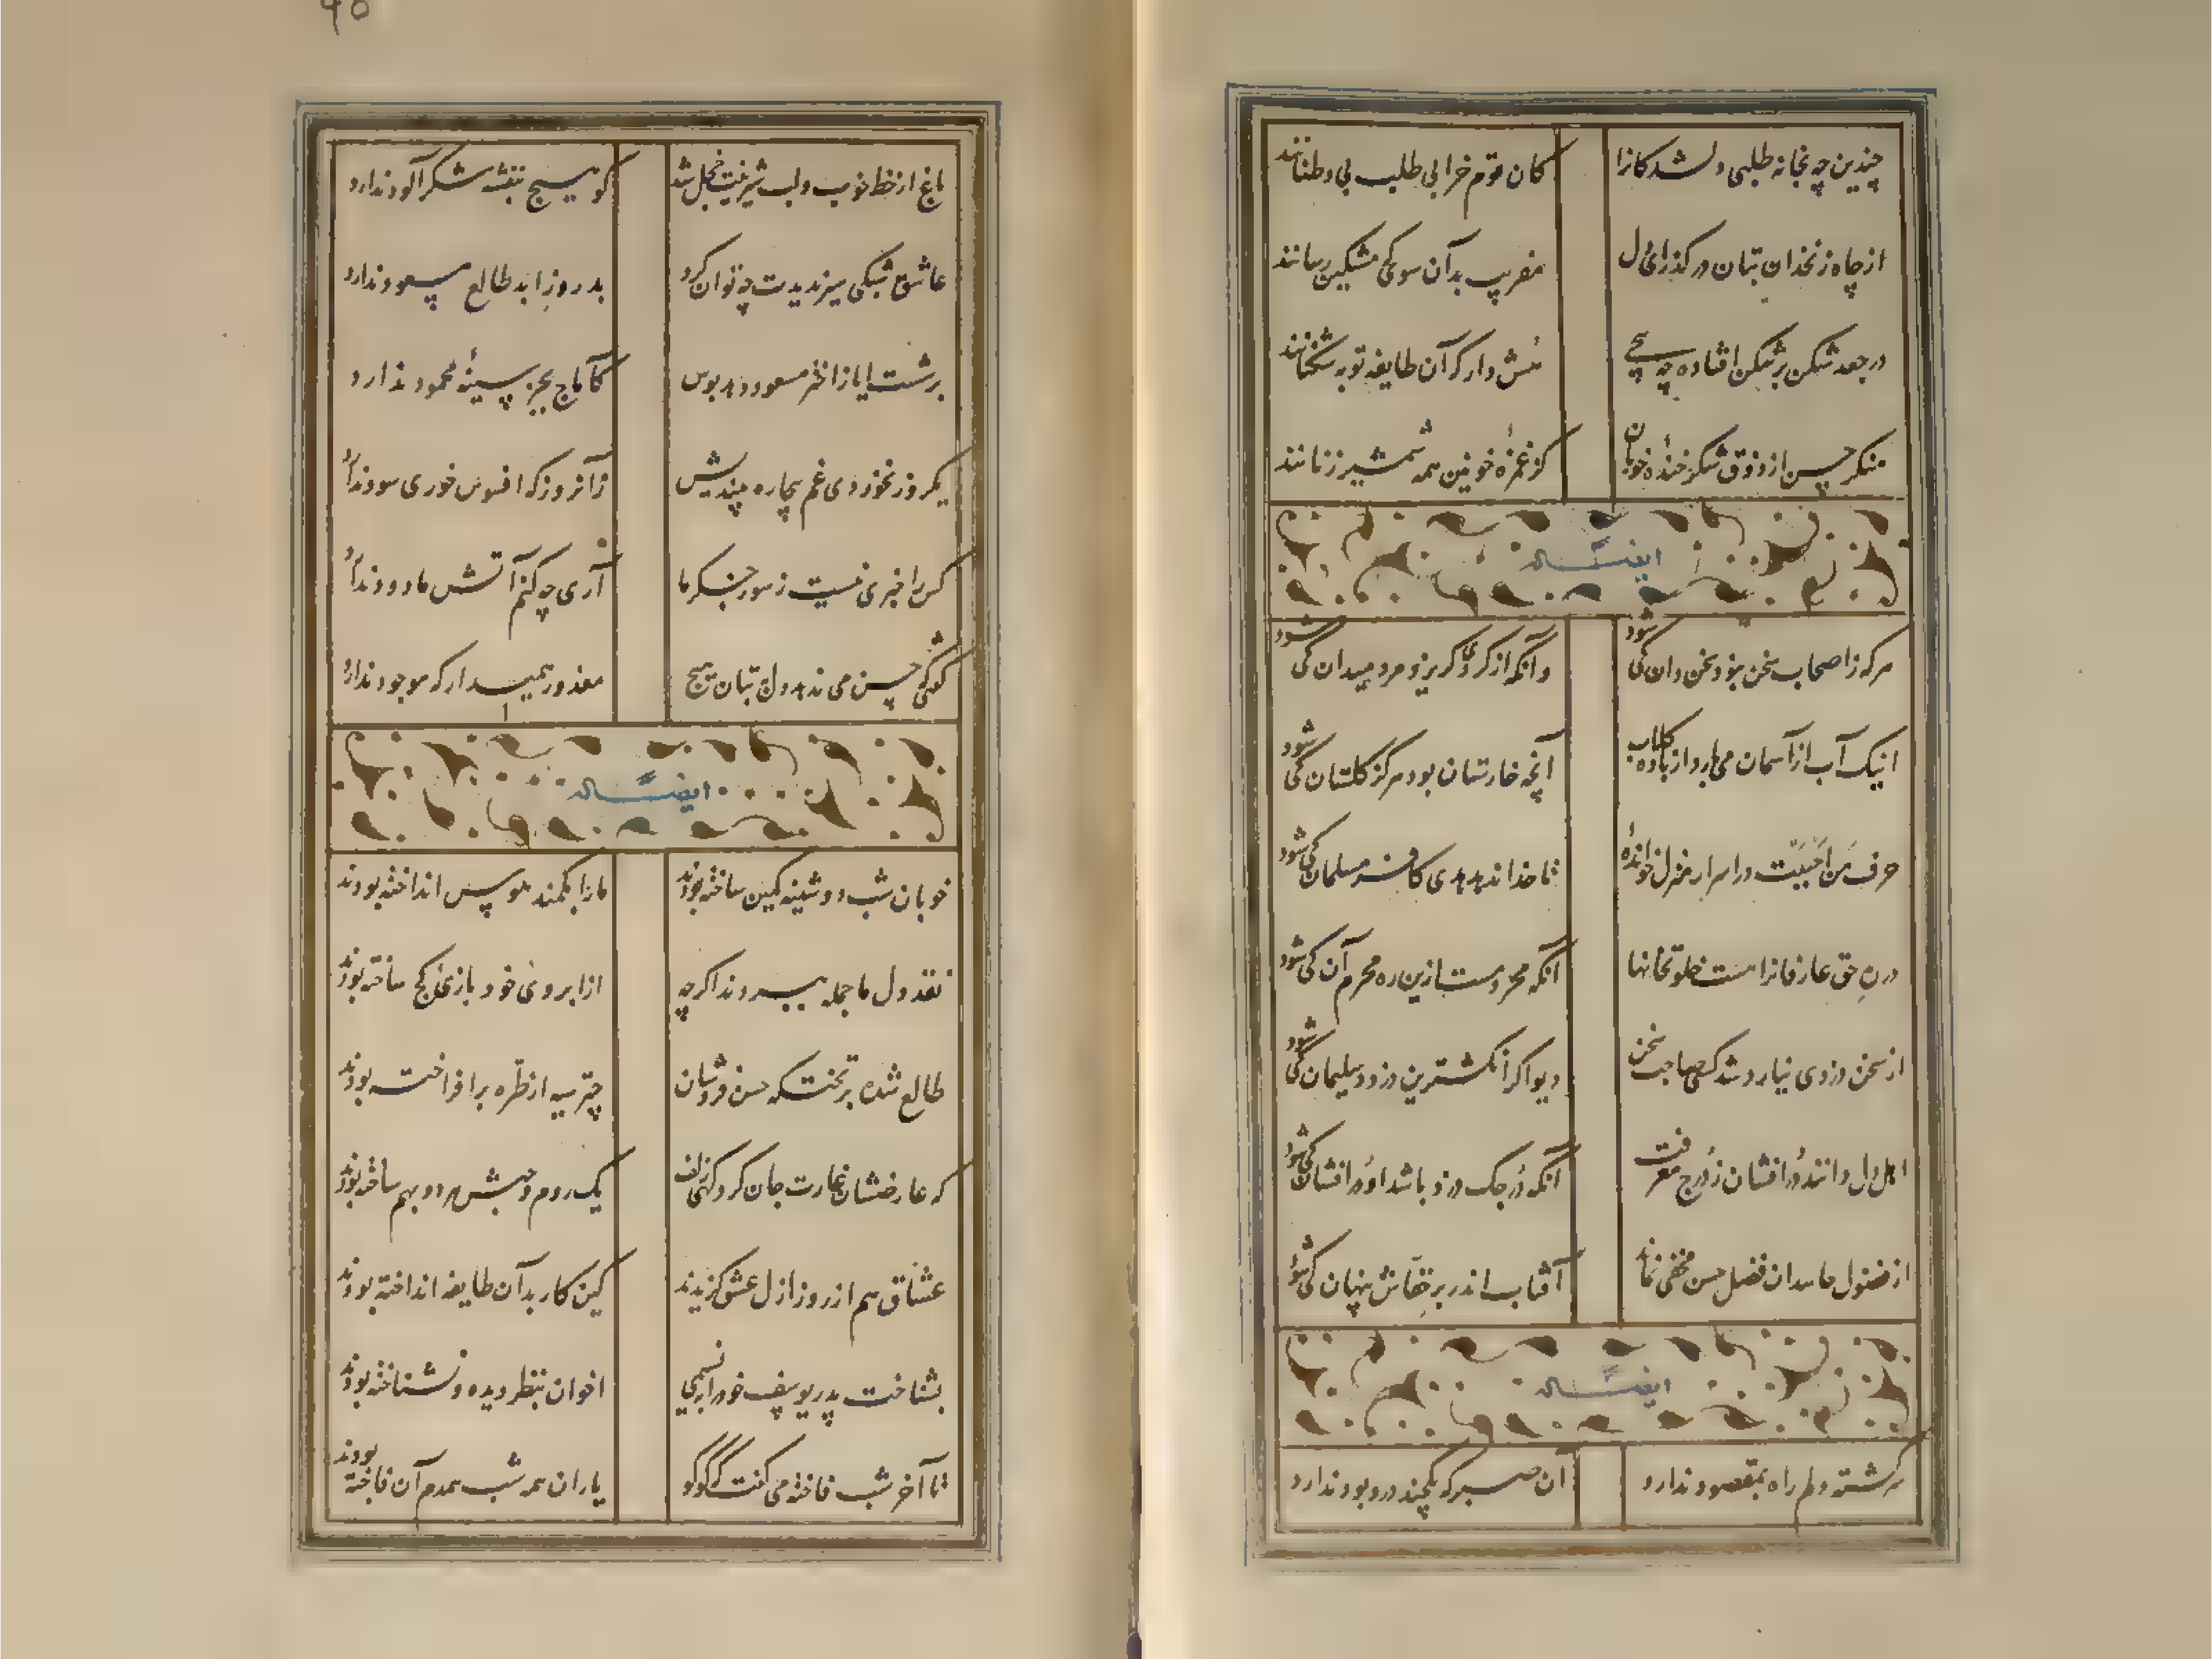 چندین چه بخانه طلبی دلشدگانرا کان قوم خرابی طلب بی وطنانند
از چاه زنخدان بتان در گذر ای دل مفریب بدان سو که مشکین رسنانند
در جعد شکن بر شکن افتاده چه پیچی هش دار که آن طایفه توبه شکنانند
منگر حسن از ذوق شکر خنده خوبان کز غمزه خونین همه شمشیر زنانند
ایضاً له
هر که ز اصحاب سخن نبود سخن دان کی شود وانکه از گردی گریزد مرد میدان کی شود
اینک آب از آسمان می بارد از باده گلاب آنچه خارستان بود هرگز گلستان کی شود
حرف من احببت در اسرار منزل خوانده تا خدا ندهد هدی کافر مسلمان کی شود
در ره حق عارفانرا هست خلوتخانها آنکه محرومست ازین ره محرم آن کی شود
از سخن دزدی نیارد شد کسی صاحب سخن دیو اگر انگشترین دزدد سلیمان کی شود
اهل دل دانند در افشان ز درج معرفت آنکه در جنگ دزد باشد او در افشان کی شود
از فضول حاسدان فضل حسن مخفی نماند آفتاب اندر بر خفاش پنهان کی شود
ایضاً له
سرگشته دلم راه بمقصود ندارد آن صبر که یکچند در و بود ندارد
۹۵
باغ از خط خوب و لب شیرینت خجل شد کو هیچ بنفشه شکر آلود ندارد
عاشق شبکی سیر ندیدت چه توان کرد بد روز ابد طالع مسعود ندارد
بر شست ایاز اختر مسعود دهد بوس کاماج بجز سینه محمود ندارد
یکروز نخوردی غم بیچاره میندیش زآنروز که افسوس خوری سود ندارد
کس را خبری نیست ز سوز جگر ما آری چه کنم آتش ما دود ندارد
گفتی که حسن می ندهد دل بتان هیچ معذور همیدار که موجود ندارد
ایضاً له
خوبان شب دوشینه کمین ساخته بودند ما را بکمند هوس انداخته بودند
نقد دل ما جمله ببردند اگر چه از ابروی خود بازی کج ساخته بودند
طالع شده بر تختگه حسن فروشان چتر سیه از طره بر افراخته بودند
که عارضشان غارت جان کرد و گهی زلف یک روم و حبش هر دو بهم ساخته بودند
عشاق هم از روز ازل عشق گزیدند کین کار بدآن طایفه انداخته بودند
بشناخت پدر یوسف خود را به نسیمی اخوان بنظر دیده و نشناخته بودند
تا آخر شب فاخته می گفت که کو کو یاران همه شب همدم آن فاخته بودند